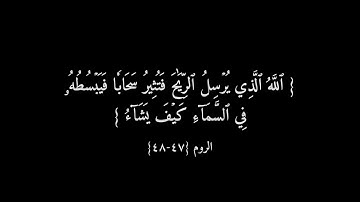 { ٱللَّهُ ٱلَّذِي يُرۡسِلُ ٱلرِّيَٰحَ فَتُثِيرُ سَحَابٗا فَيَبۡسُطُهُۥ
فِي ٱلسَّمَآءِ كَيۡفَ يَشَآءُ }
الروم {٤٧-٤٨}